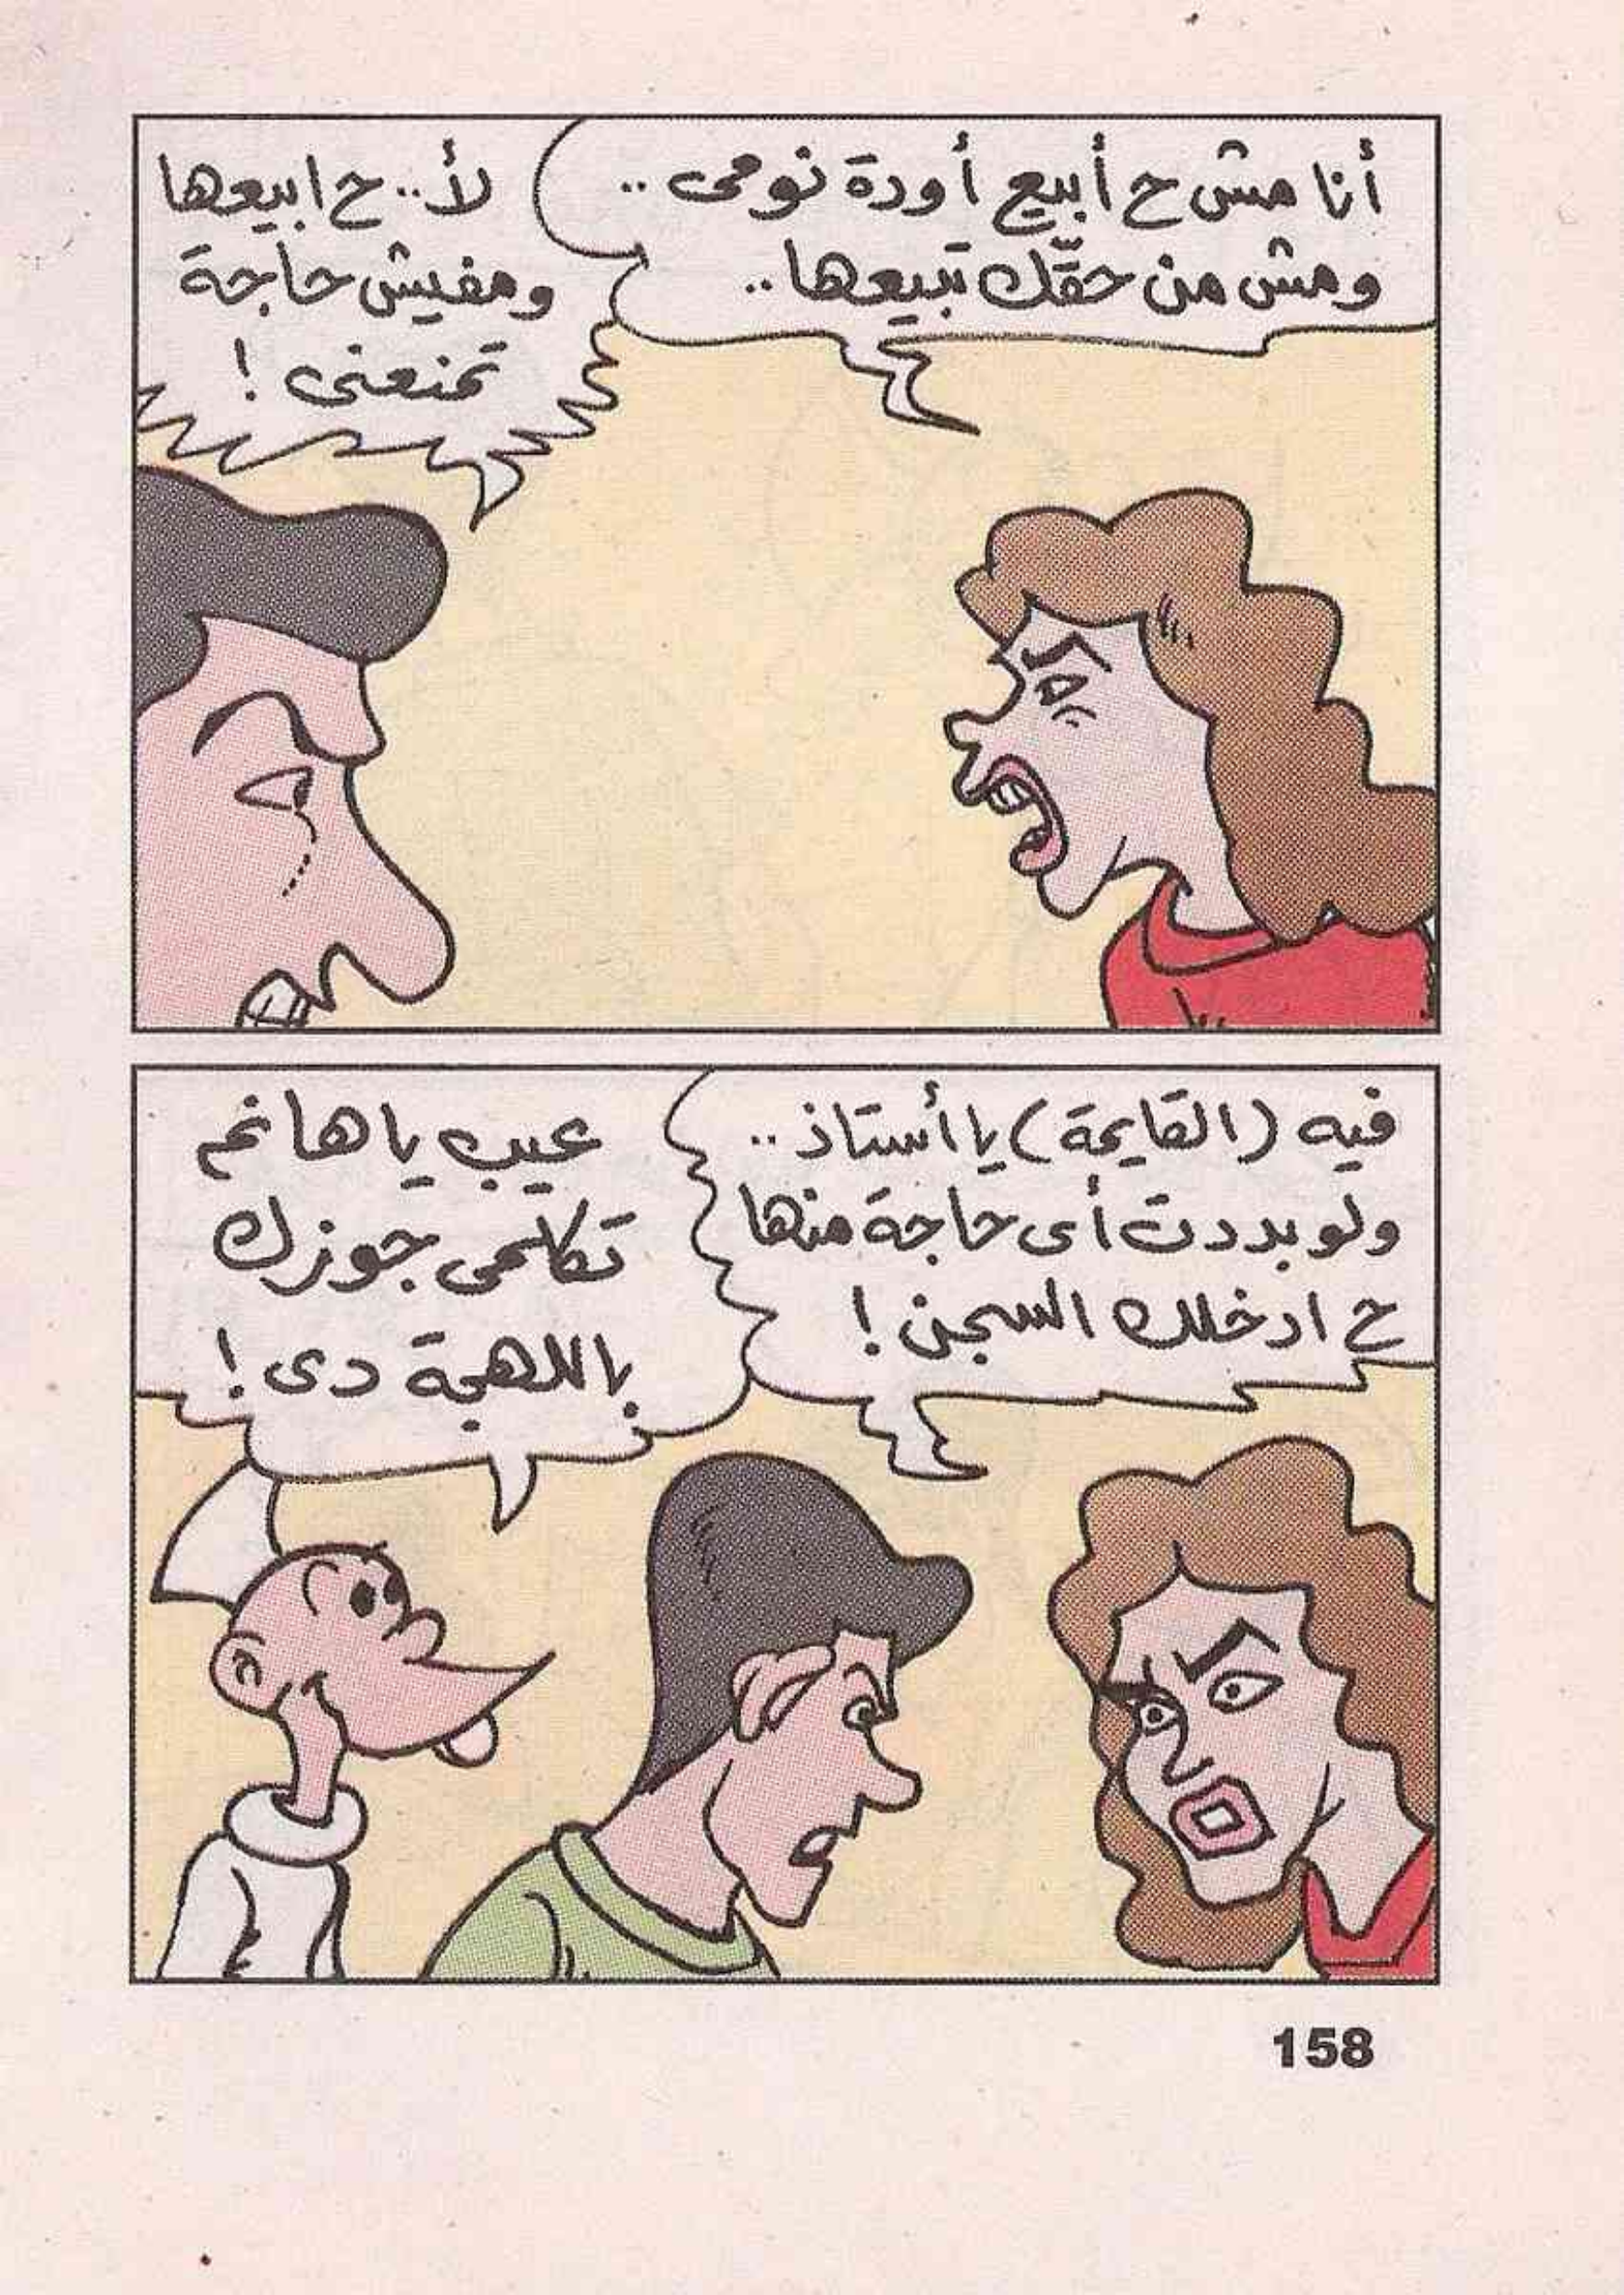 أنا مش ح أبيع أودة نومى ..
ومش من حقّك تبيعها ..
لأ .. ح ابيعها
ومفيش حاجة
تمنعنى !
فيه (القايمة) يا أستاذ ..
ولو بددت أى حاجة منها
ح ادخلك السجن !
عيب يا هانم
تكلمى جوزك
باللهجة دى !
158